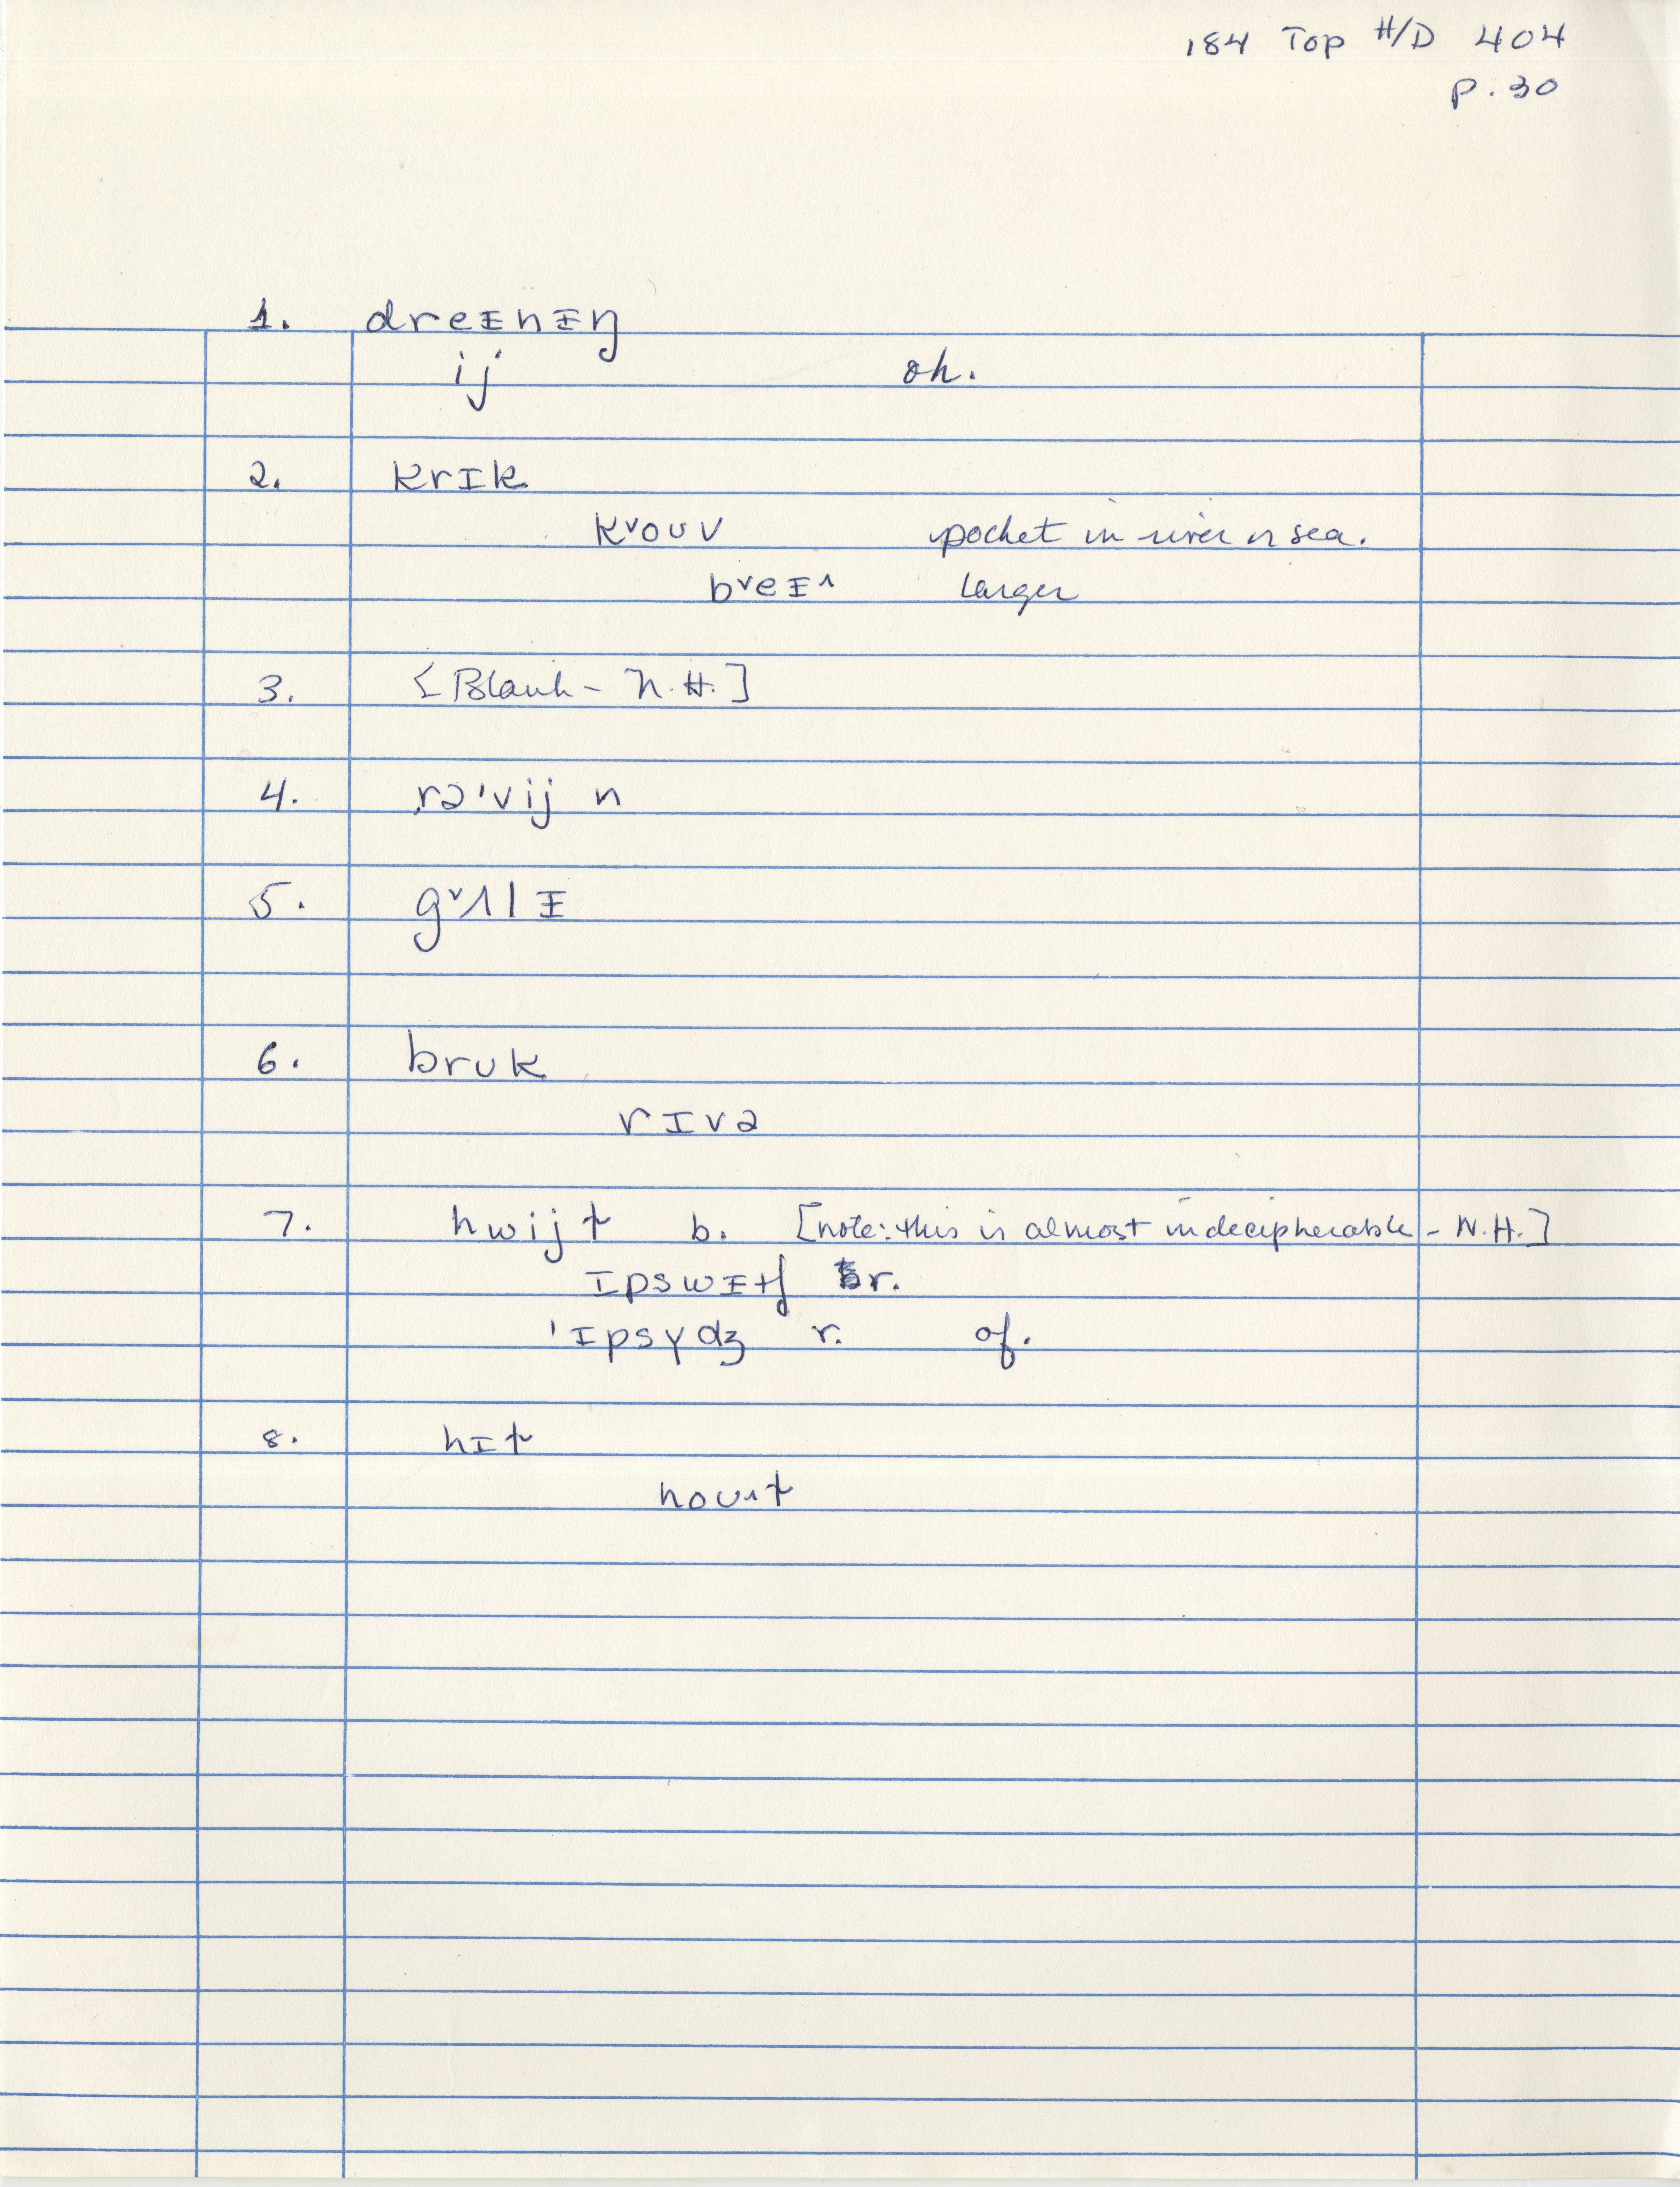 184 Top H/D 404
p. 30
1. dreɪnɪŋ
ij oh.
2. krɪk
kᵛouv pocket in river or sea.
bᵛeɪ^ larger
3. [Blank - N.H.]
4. rə'vij n
5. gᵛʌlɪ
6. bruk
rɪvə
7. hwijt b. [note: this is almost indecipherable - N.H.]
ɪpswɪtʃ r.
'ɪpsɣdʒ r. of.
8. hɪt